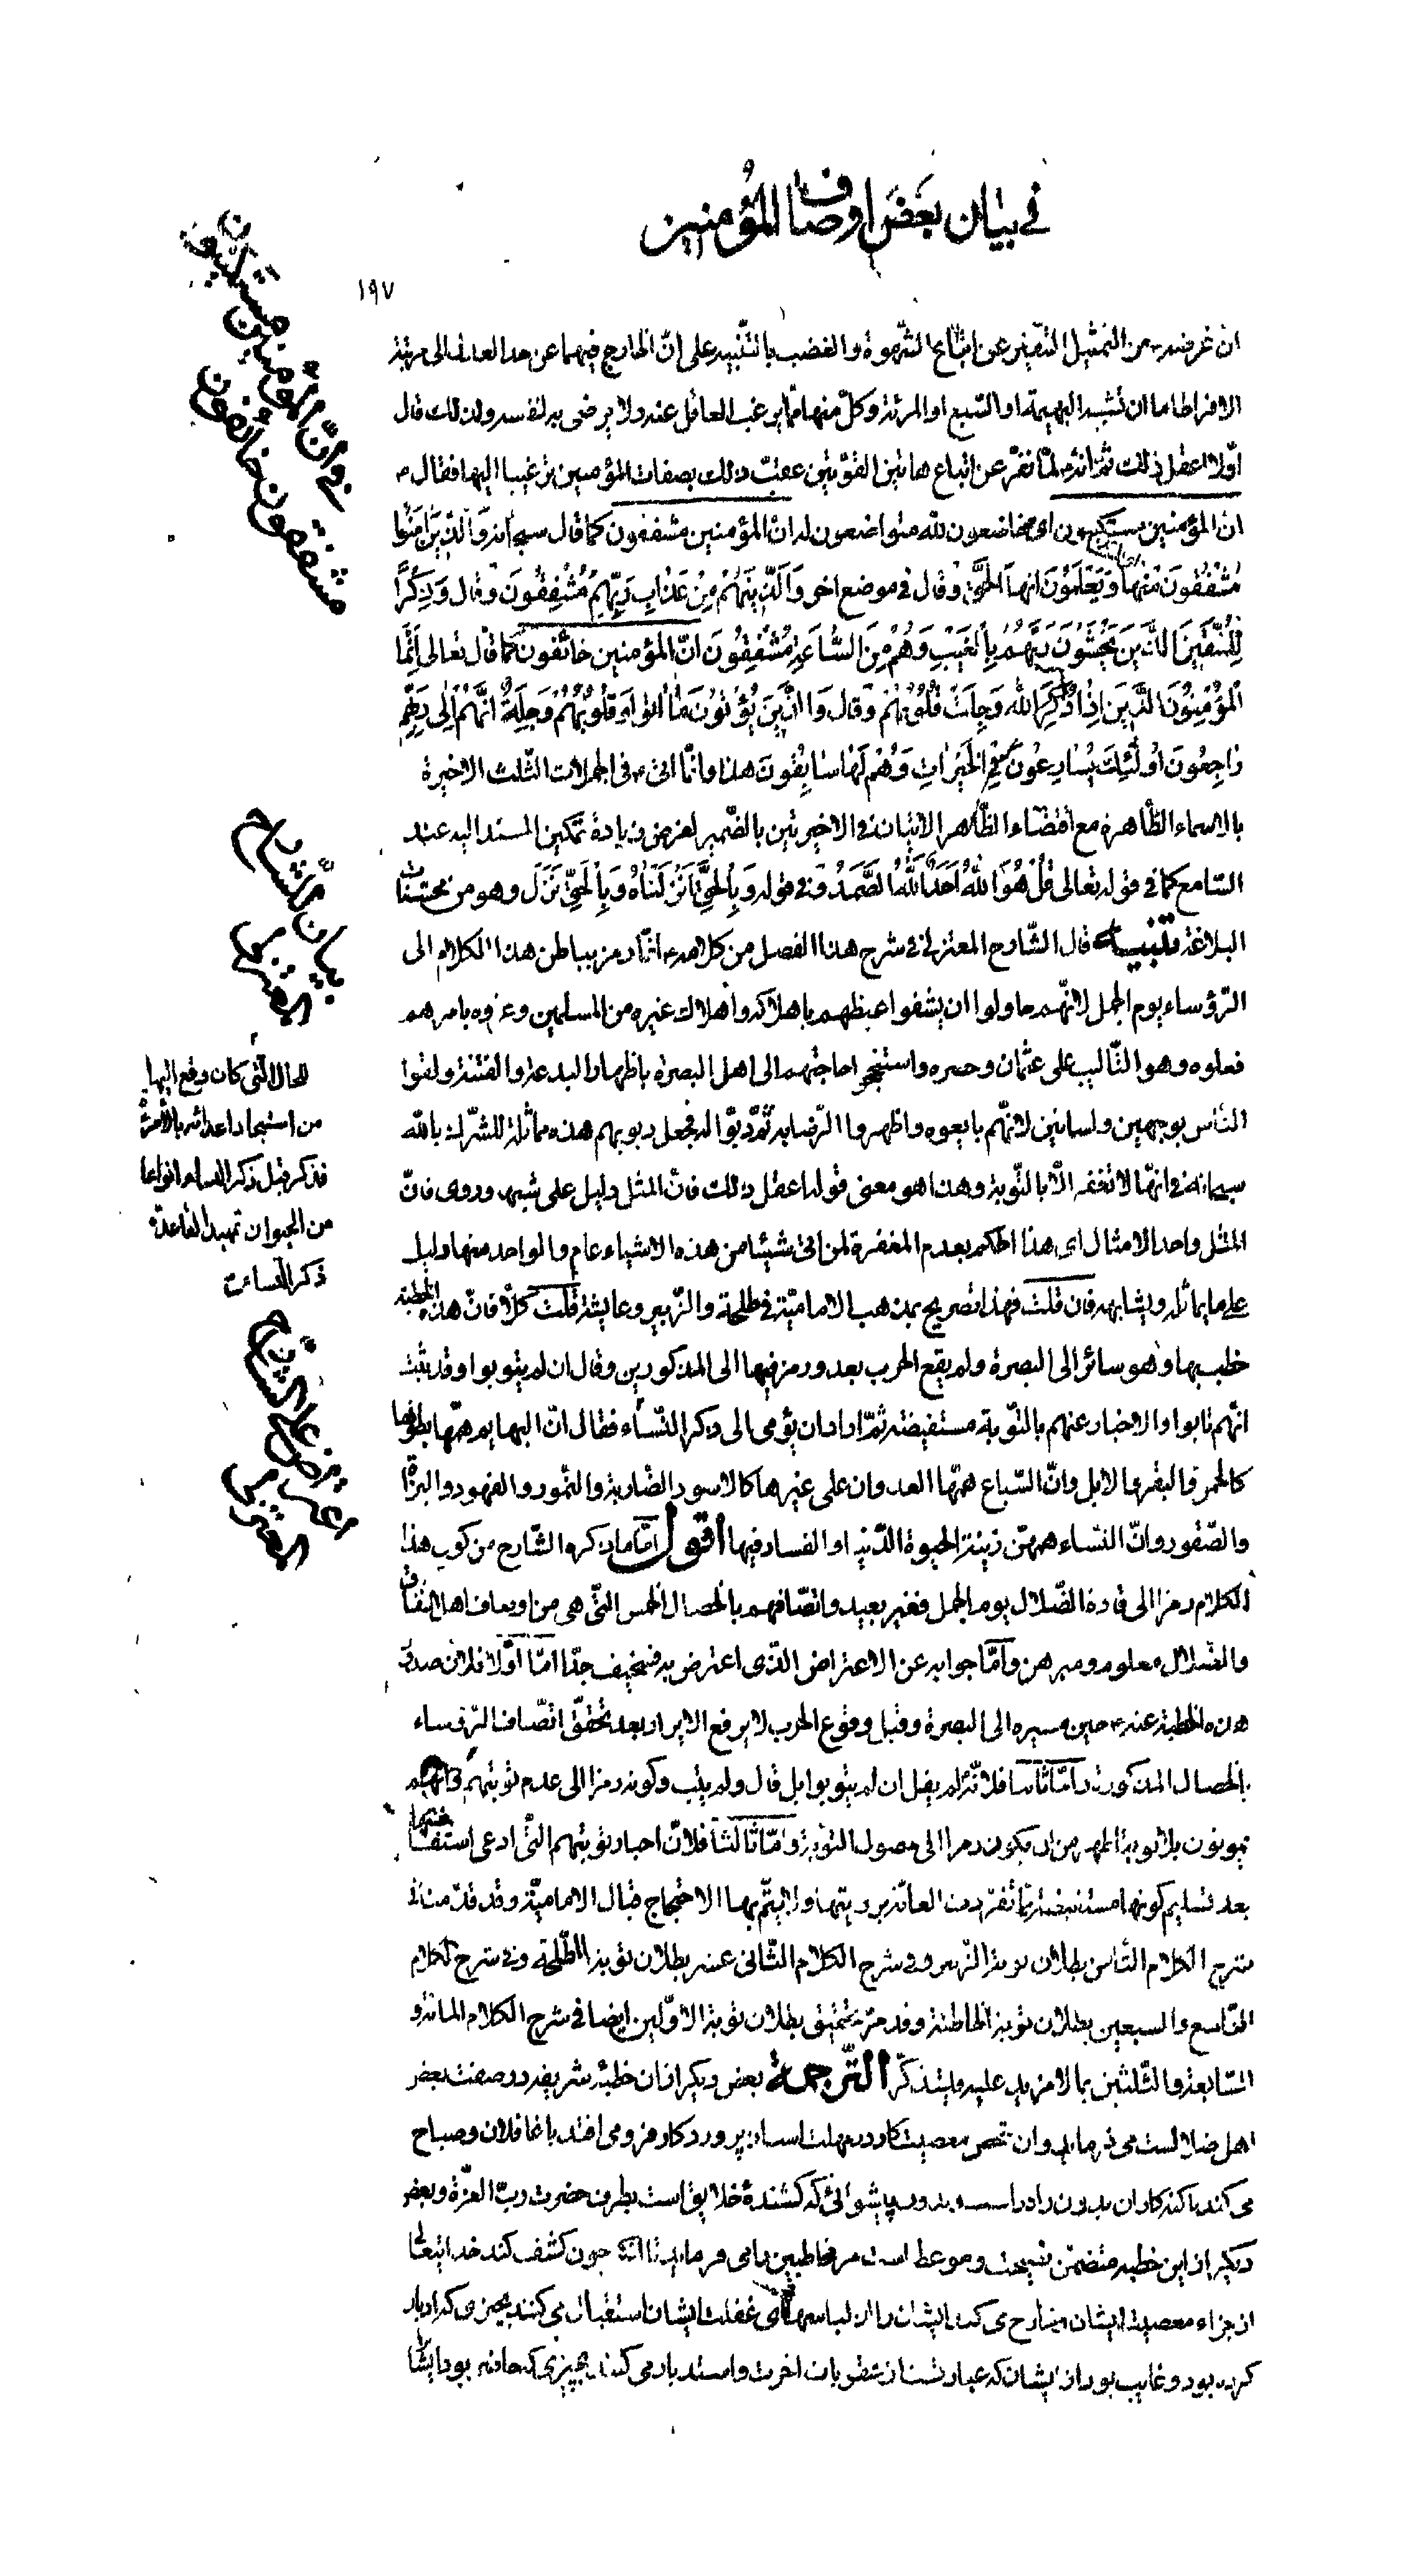 في بيان بعض اوصاف المؤمنين
١٩٧
ان غرضه من التمثيل التنفير عن اتباع الشهوة والغضب بالتنبيه على انّ الخارج فيهما عن حد العدل الى مرتبة
الافراط اما ان يشبه البهيمة او السبع او المرئة وكلّ منها ممّا يرغب العاقل عنه ولا يرضى به لنفسه ولذلك قال
اوّلا اعقل ذلك ثمّ انّه لمّا نفّر عن اتباع هاتين القوّتين عقّب ذلك بصفات المؤمنين ترغيبا اليها فقال
ان المؤمنين مستكينون اى خاضعون لله متواضعون له ان المؤمنين مشفقون كما قال سبحانه وَالَّذينَ امَنُوا
مُشْفِقُونَ مِنْها وَيَعْلَمُونَ انها الْحَقُّ وقال في موضع اخر وَالَّذينَهُمْ مِنْ عَذابِ رَبِّهِمْ مُشْفِقُونَ وقال وَذِكْرًا
لِلْمُتَّقينَ الَّذينَ يَخْشَوْنَ رَبَّهُمْ بِالْغَيْبِ وَهُمْ مِنَ السّاعَةِ مُشْفِقُونَ انّ المؤمنين خائفون كما قال تعالى اِنَّمَا
الْمُؤْمِنُونَ الَّذينَ اِذا ذُكِرَ اللهُ وَجِلَتْ قُلُوبُهُمْ وقال وَالَّذينَ يُؤْتُونَ ما اتَوا وَقُلُوبُهُمْ وَجِلَةٌ اَنَّهُمْ اِلى رَبِّهِمْ
راجِعُونَ اُولئِكَ يُسارِعُونَ فِي الْخَيْراتِ وَهُمْ لَها سابِقُونَ هذا وانّما اتى في الجملات الثّلث الاخيرة
بالاسماء الظّاهرة مع اقتضاء الظّاهر الاتيان في الاخيرتين بالضّمير لغرض زيادة تمكين المسند اليه عند
السّامع كما في قوله تعالى قُلْ هُوَ اللهُ اَحَدٌ اَللهُ الصَّمَدُ وفي قوله وَبِالْحَقِّ اَنْزَلْناهُ وَبِالْحَقِّ نَزَلَ وهو من محسّنات
البلاغة تنبيه قال الشّارح المعتزلي في شرح هذا الفصل من كلامه انّه رمز بباطن هذا الكلام الى
الرّؤساء يوم الجمل لانّهم حاولوا ان يشفوا غيظهم باهلاكه واهلاك غيره من المسلمين وعزوه بامر هم
فعلوه وهو التّأليب على عثمان وحصره واستنجحوا حاجتهم الى اهل البصرة باظهار البدعة والفتنة ولقوا
النّاس بوجهين ولسانين لانّهم بايعوه واظهروا الرّضا به ثمّ دبّوا له فجعل ذنوبهم هذه مماثلة للشّرك بالله
سبحانه في انّها لا تغفر الّا بالتّوبة وهذا هو معنى قوله اعقل ذلك فانّ المثل دليل على شبهه وروى فانّ
المثل واحد الامثال اى هذا الحكم بعدم المغفرة لمن اتى شيئا من هذه الاشياء عام والواحد منها دليل
على ما يماثله ويشابهه فان قلت فهذا تصريح بمذهب الاماميّة في طلحة والزّبير وعايشة قلت كلّا فانّ هذه الخطبة
خطب بها وهو سائر الى البصرة ولم يقع الحرب بعد ورمز فيها الى المذكورين وقال ان لم يتوبوا وقد ثبت
انّهم تابوا والاخبار عنهم بالتّوبة مستفيضة ثمّ اراد ان يؤمى الى ذكر النّساء فقال انّ البهايم همّها بطونها
كالحمر والبقر والابل وانّ السّباع همّها العدوان على غيرها كالاسود الضّارية والنّمور والفهود والبزاة
والصّقور وانّ النّساء همهنّ زينة الحيوة الدّنيا والفساد فيها اقول امّا ما ذكره الشّارح من كون هذا
الكلام رمزا الى قادة الضّلال يوم الجمل فغير بعيد واتصّافهم بالخصال الخمس الّتى هي من اوصاف اهل النفاق
والضّلال معلوم ومبرهن وامّا جوابه عن الاعتراض الّذى اعترض به فسخيف جدّا امّا اوّلا فلانّ صدور
هذه الخطبة عنه حين مسيره الى البصرة وقبل وقوع الحرب لا يرفع الايراد بعد تحقّق اتّصاف الرّؤساء
بالخصال المذكورة وامّا ثانيا فلانّه لم يقل ان لم يتوبوا بل قال ولم يتب وكونه رمزا الى عدم توبتهم وانّهم
يموتون بلا توبة اظهر من ان يكون رمزا الى حصول التّوبة وامّا ثالثا فلانّ اخبار توبتهم الّتى ادعى استفاضتها
بعد تسليم كونها مستفيضة ممّا تفرّدت العامّة بروايتها ولا يتمّ بها الاحتجاج قبال الاماميّة وقد قدّمنا في
شرح الكلام الثّامن بطلان توبة الزّبير وفي شرح الكلام الثّانى عشر بطلان توبة الطّلحة وفي شرح الكلام
التّاسع والسبعين بطلان توبة الخاطئة وقد مرّ تحقيق بطلان توبة الاوّلين ايضا في شرح الكلام المائة و
السّابعة والثّلثين بما لا مزيد عليه فليتذكّر التّرجمة بعض ديكر از ان خطبه شريفه در صفت بعض
اهل ضلالست مى فرمايد وان شخص معصيت كار در مهلت است از پروردكار فرو مى افتد با غافلان وصباح
مى كند با كنه كاران بدون راه راست وبدون پيشوائى كه كشنده خلايق است بطرف حضرت ربّ العزّة وبعض
ديكر از اين خطبه متضمّن نصيحت وموعظه است مر مخاطبين را مى فرمايد تا انكه چون كشف كند خدايتعالى
از جزاء معصيت ايشان وخارج مى كند ايشان را از لباسهاى غفلت ايشان استقبال مى كنند بچيزى كه ادبار
كرده بود وغايب بود از ايشان كه عبارتست از عقوبات اخرت واستدبار مى كنند بچيزى كه حاضر بود ايشانرا
في وانّ المؤمنين مستكينون
مشفقون خائفون
بيان الشّارح
المعتزلى
للحال الّتى كان وقع اليها
من استنجاد اعدائه بالامرئة
فذكر قبل ذكر النساء انواعا
من الحيوان تمهيدا لقاعدة
ذكر النّساء
اعتراض على الشّارح
المعتزلى